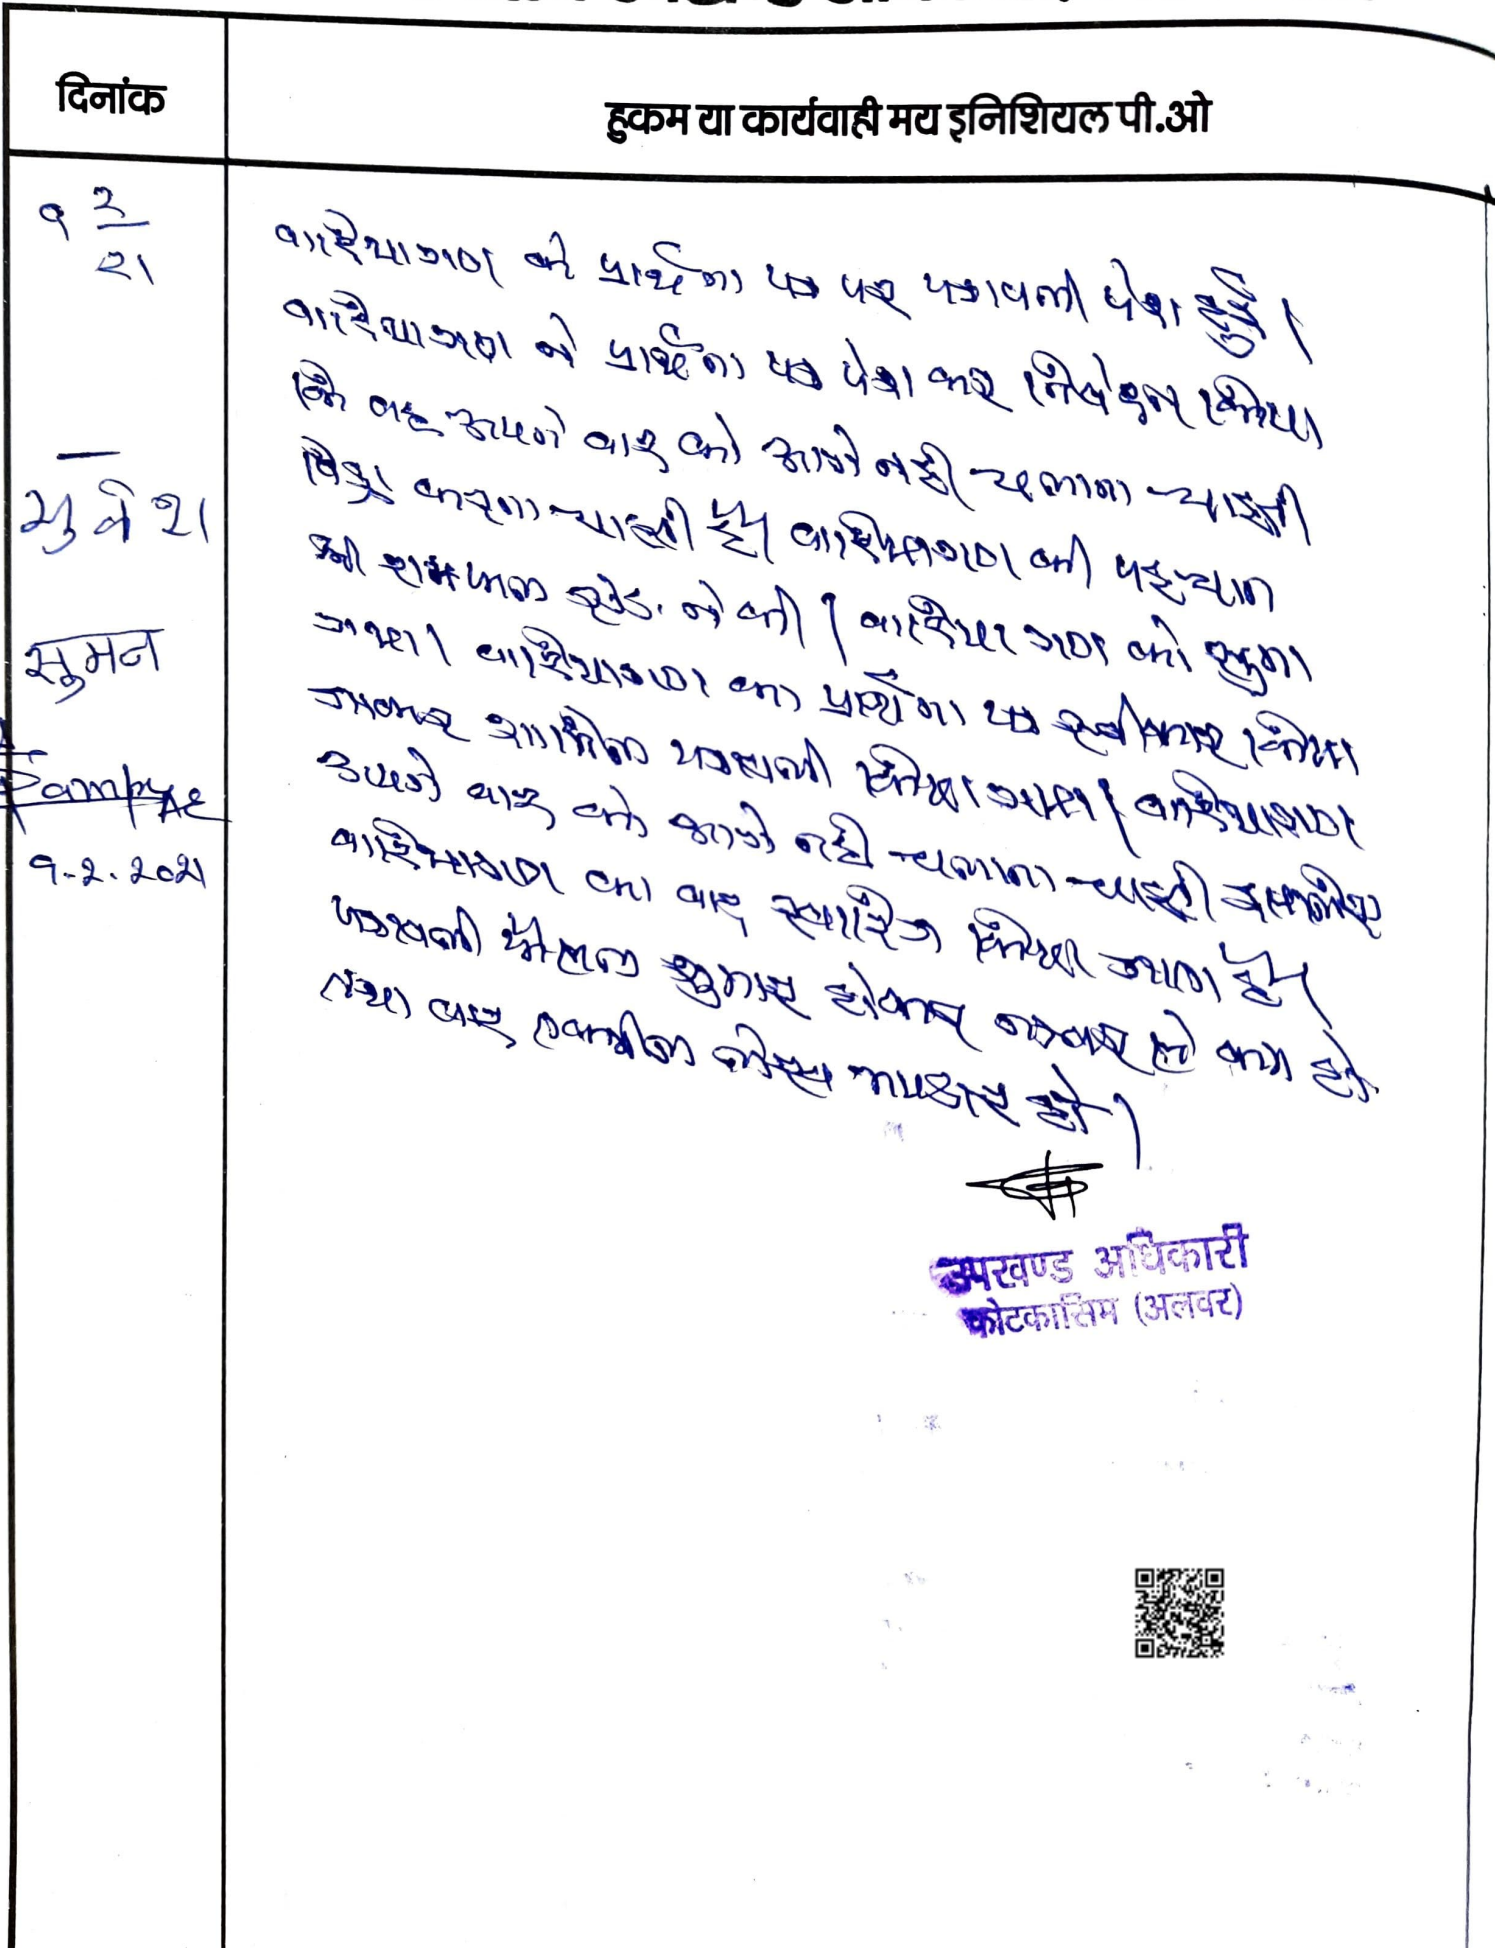 दिनांक
हुकम या कार्यवाही मय इनिशियल पी.ओ
9 2/21
वादियागण के प्रार्थना पत्र पर पत्रावली पेश हुई।
वादियागण ने प्रार्थना पत्र पेश कर निवेदन किया
कि वह अपने वाद को आगे नही चलाना चाहती
विड्रा करना चाहती है। वादियागण की पहचान
श्री रामपाल एडे. ने की। वादिया गण को सुना
गया। वादियागण का प्रार्थना पत्र स्वीकार किया
जाकर शामिल पत्रावली किया गया। वादियागण
अपने वाद को आगे नही चलाना चाहती इसलिए
वादियागण का वाद खारिज किया जाता है।
पत्रावली फैसल शुमार होकर नम्बर से कम हो
तथा वाद तकमील दाखिल दफ्तर हो।
सुमन
9.2.2021
उपखण्ड अधिकारी
कोटकासिम (अलवर)